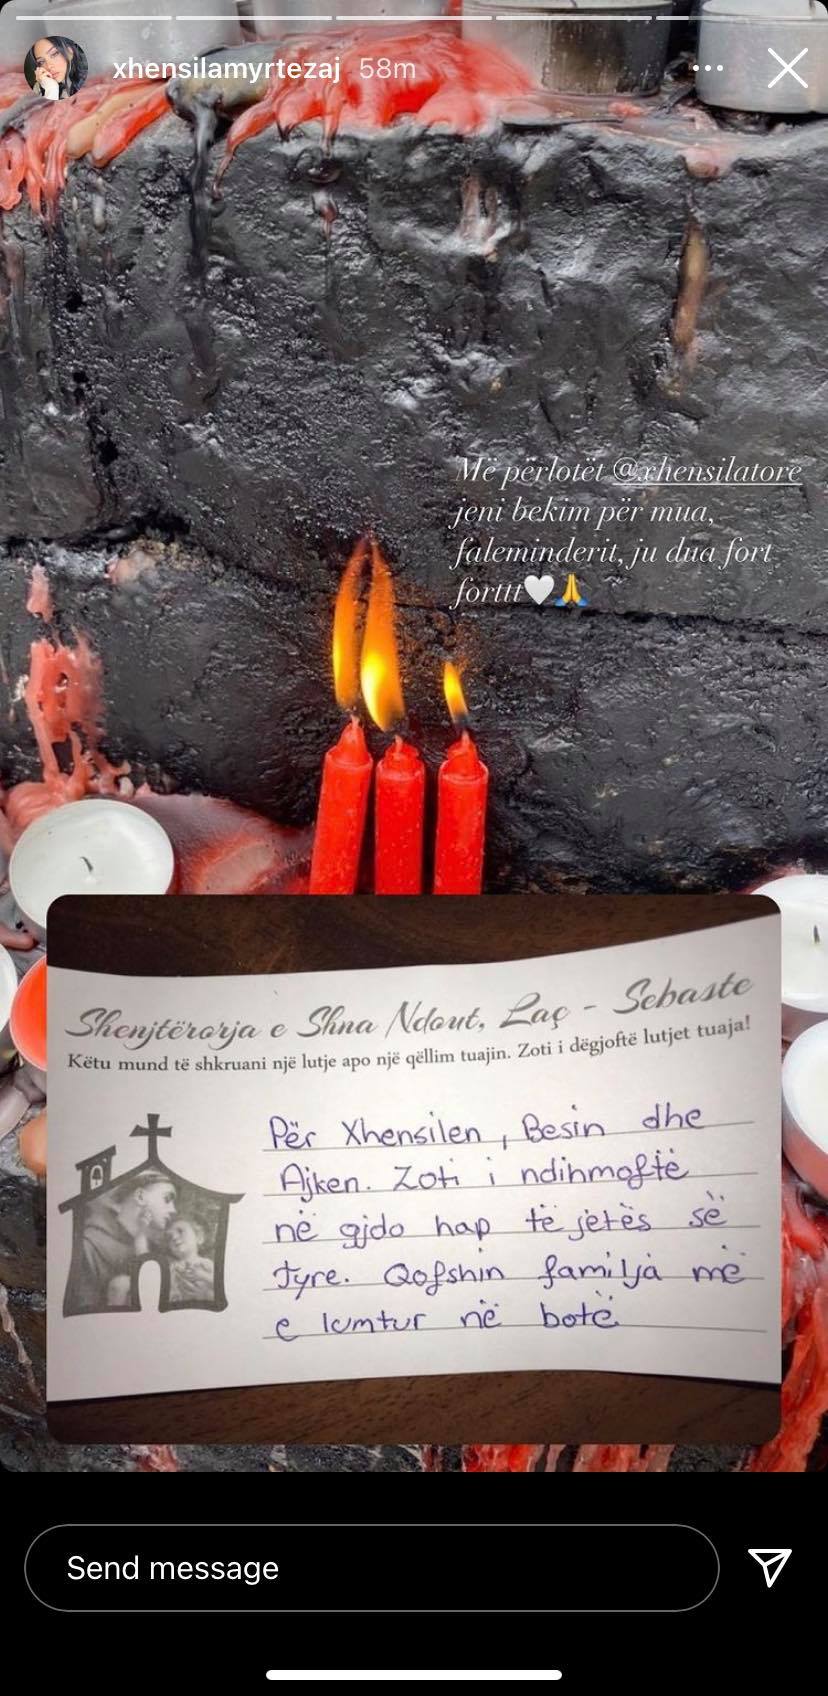 xhensilamyrtezaj 58m
Më përlotët @xhensilatore
jeni bekim për mua,
faleminderit, ju dua fort
forttt🤍🙏
Shenjtërorja e Shna Ndout, Laç - Sebaste
Këtu mund të shkruani një lutje apo një qëllim tuajin. Zoti i dëgjoftë lutjet tuaja!
Për Xhensilen, Besin dhe
Ajken. Zoti i ndihmoftë
në gjdo hap të jetës së
tyre. Qofshin familja më
e lumtur në botë
Send message